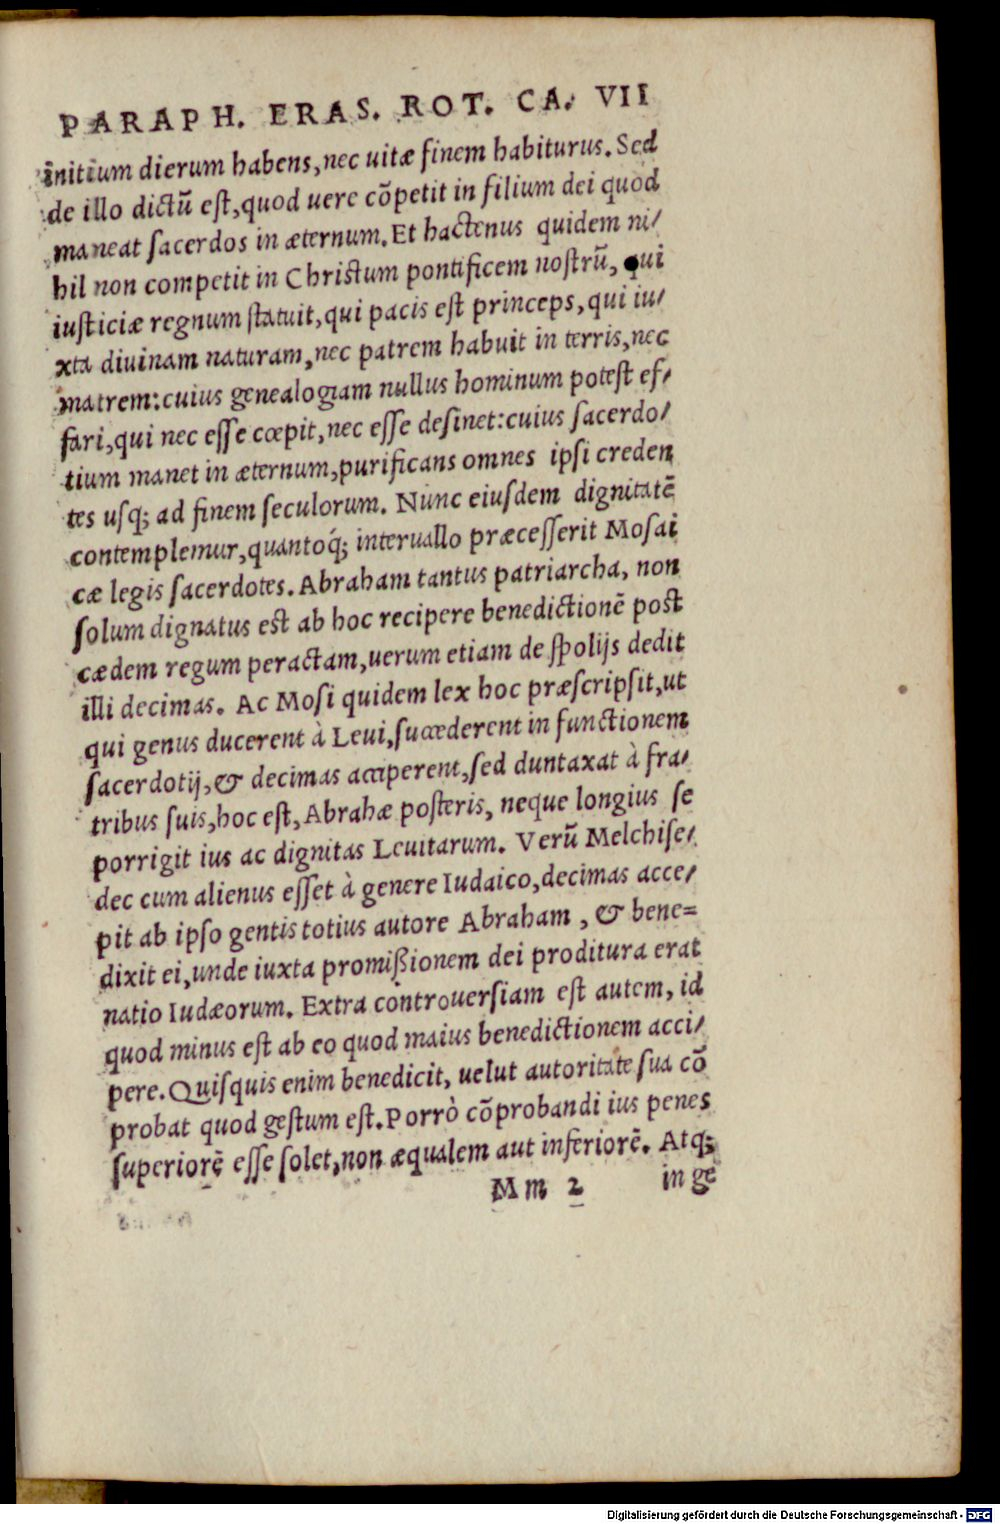 PARAPH. ERAS. ROT. CA. VII
initium dierum habens, nec uitæ finem habiturus. Sed
de illo dictũ est, quod uere cõpetit in filium dei quod
maneat sacerdos in æternum. Et hactenus quidem ni/
hil non competit in Christum pontificem nostrũ, qui
iusticiæ regnum statuit, qui pacis est princeps, qui iu/
xta diuinam naturam, nec patrem habuit in terris, nec
matrem: cuius genealogiam nullus hominum potest ef/
fari, qui nec esse cœpit, nec esse desinet: cuius sacerdo/
tium manet in æternum, purificans omnes ipsi creden
tes usq; ad finem seculorum. Nunc eiusdem dignitatẽ
contemplemur, quantoq́; interuallo præcesserit Mosai
cæ legis sacerdotes. Abraham tantus patriarcha, non
solum dignatus est ab hoc recipere benedictionẽ post
cædem regum peractam, uerum etiam de spolijs dedit
illi decimas. Ac Mosi quidem lex hoc præscripsit, ut
qui genus ducerent à Leui, succederent in functionem
sacerdotij, & decimas acciperent, sed duntaxat à fra/
tribus suis, hoc est, Abrahæ posteris, neque longius se
porrigit ius ac dignitas Leuitarum. Verũ Melchise/
dec cum alienus esset à genere Iudaico, decimas acce/
pit ab ipso gentis totius autore Abraham, & bene=
dixit ei, unde iuxta promißionem dei proditura erat
natio Iudæorum. Extra controuersiam est autem, id
quod minus est ab eo quod maius benedictionem acci/
pere. Quisquis enim benedicit, uelut autoritate sua cõ
probat quod gestum est. Porrò cõprobandi ius penes
superiorẽ esse solet, non æqualem aut inferiorẽ. Atq;
Mm 2 in ge
Digitalisierung gefördert durch die Deutsche Forschungsgemeinschaft - DFG